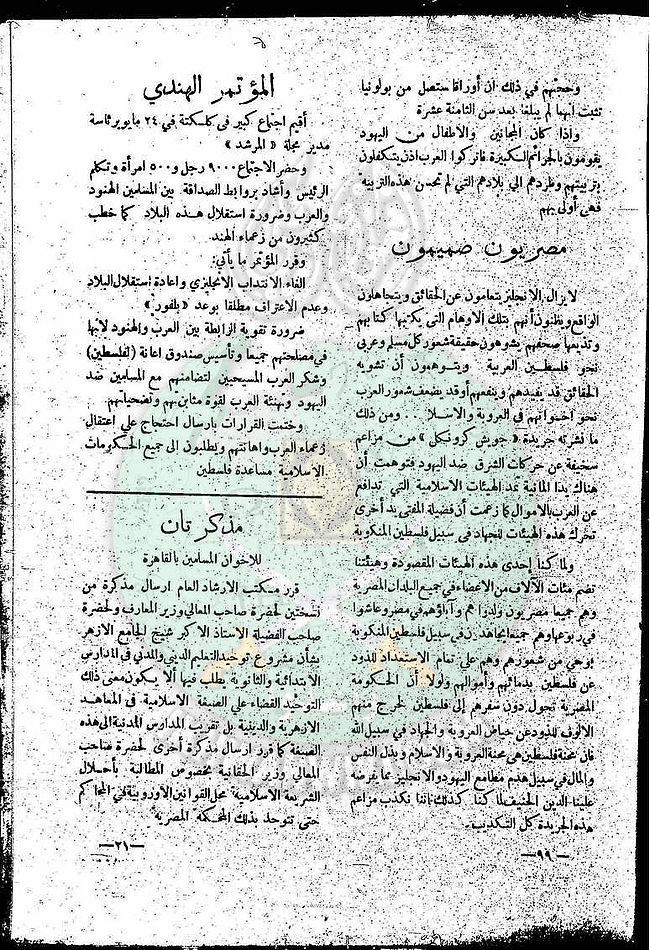 وحجتهم في ذلك ان أوراقا ستصل من بولونيا
تثبت انهما لم يبلغا بعد سن الثامنة عشرة
واذا كان المجانين والأطفال من اليهود
يقومون بالجرائم الكبيرة فاتركوا العرب اذن يتكفلون
بتربيتهم وطردهم الى بلادهم التي لم تحسن هذه التربية
فهى أولى بهم
مصريون صميمون
لا يزال الانجليز يتعامون عن الحقائق ويتجاهلون
الواقع ويظنون أنهم بتلك الاوهام التى يكتبها كتابهم
وتذيعها صحفهم يشوهون حقيقة شعور كل مسلم وعربى
نحو فلسطين العربية ويتوهمون أن تشويه
الحقائق قد يفيدهم وينفعهم أو قد يضعف شعور العرب
نحو اخوانهم فى العروبة والاسلام .. ومن ذلك
ما نشرته جريدة « جويش كرونيكل » من مزاعم
سخيفة عن حركات الشرق ضد اليهود فتوهمت أن
هناك يدا المانية تمد الهيئات الاسلامية التي تدافع
عن العرب بالاموال كما زعمت أن فضيلة المفتى يد أخرى
تحرك هذه الهيئات للجهاد فى سبيل فلسطين المنكوبة
ولما كنا إحدى هذه الهيئات المقصودة وهيئتنا
تضم مئات الآلاف من الأعضاء فى جميع البلدان المصرية
وهم جميعا مصريون ولدوا هم وآباؤهم فى مصر وعاشوا
فى ربوعها وهم جميعا مجاهدون فى سبيل فلسطين المنكوبة
بوحي من شعورهم وهم على تمام الاستعداد للذود
عن فلسطين بدمائهم وأموالهم ولولا أن الحكومة
المصرية تحول دون سفرهم إلى فلسطين لخرج منهم
الالوف للذود عن حياض العروبة والجهاد فى سبيل الله
فان محنة فلسطين هى محنة العروبة والاسلام وبذل النفس
والمال فى سبيل هدم مطامع اليهود والانجليز مما يفرضه
علينا الدين الحنيف لما كنا كذلك اننا نكذب مزاعم
هذه الجريدة كل التكذيب .
—٩٩—
المؤتمر الهندي
أقيم اجتماع كبير فى كلسكتة فى ٢٤ مايو برئاسة
مدير مجلة « المرشد »
وحضر الاجتماع ٩٠٠٠ رجل و٥٠٠ امرأة وتكلم
الرئيس وأشاد بروابط الصداقة بين المسلمين الهنود
والعرب وضرورة استقلال هذه البلاد كما خطب
كثيرون من زعماء الهند.
وقرر المؤتمر ما يأتي:
الغاء الانتداب الانجليزى واعادة استقلال البلاد
وعدم الاعتراف مطلقا بوعد « بلفور »
ضرورة تقوية الرابطة بين العرب والهنود لانها
فى مصلحتهم جميعا وتأسيس صندوق اعانة (لفلسطين)
وشكر العرب المسيحيين لتضامنهم مع المسلمين ضد
اليهود وتهنئة العرب لقوة مثابرتهم وتضحياتهم
وختمت القرارات بارسال احتجاج على اعتقال
زعماء العرب واهانتهم ويطلبون الى جميع الحكومات
الاسلامية مساعدة فلسطين
مذكرتان
للاخوان المسلمين بالقاهرة
قرر مكتب الارشاد العام ارسال مذكرة من
نسختين لحضرة صاحب المعالي وزير المعارف ولحضرة
صاحب الفضيلة الاستاذ الاكبر شيخ الجامع الازهر
بشأن مشروع توحيد التعليم الديني والمدنى فى المدارس
الابتدائية والثانوية يطلب فيها ألا يكون معنى ذلك
التوحيد القضاء على الصبغة الاسلامية فى المعاهد
الازهرية والدينية بل تقريب المدارس المدنية الى هذه
الصبغة كما قرر ارسال مذكرة أخرى لحضرة صاحب
المعالى وزير الحقانية بخصوص المطالبة باحلال
الشريعة الاسلامية محل القوانين الأوروبية فى المحاكم
حتى تتوحد بذلك المحكمة المصرية
—٢١—